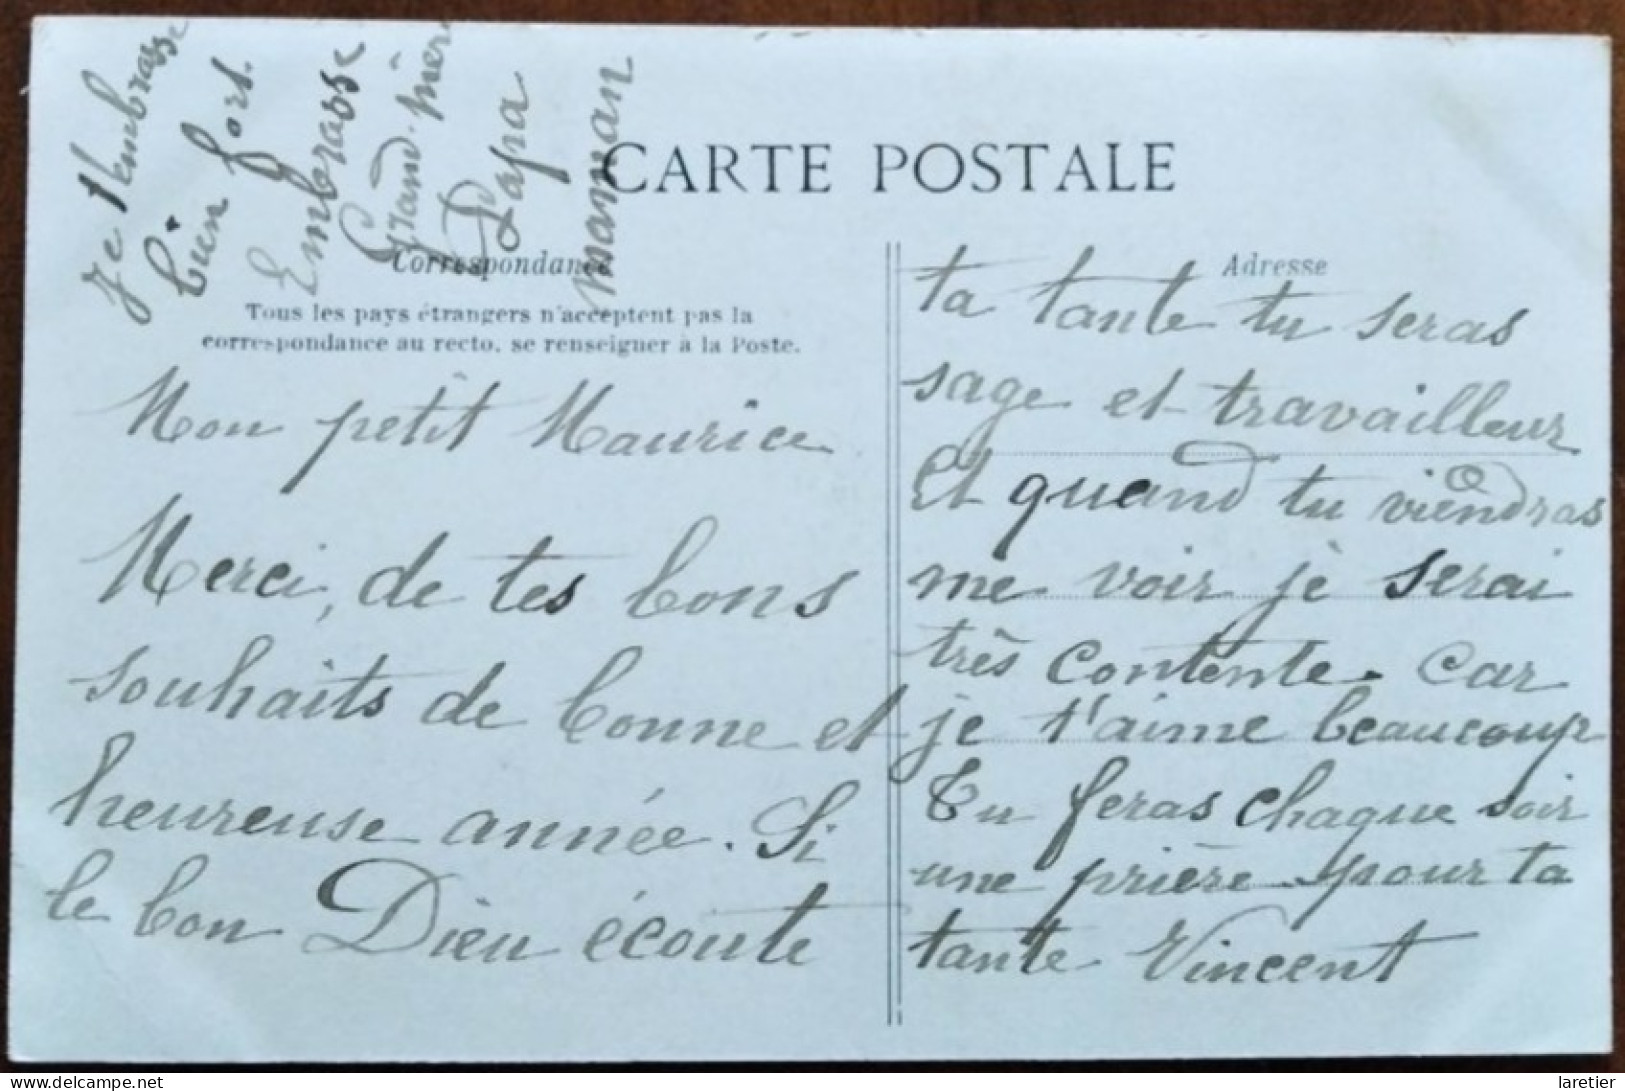 Je t'embrasse
bien fort.
Embrasse
Grand-mère
Papa
maman
CARTE POSTALE
Correspondance
Tous les pays étrangers n'acceptent pas la
correspondance au recto, se renseigner à la Poste.
Mon petit Maurice
Merci, de tes bons
souhaits de bonne et
heureuse année. Si
le bon Dieu écoute
Adresse
ta tante tu seras
sage et travailleur
Et quand tu viendras
me voir je serai
très contente. Car
je t'aime beaucoup
Tu feras chaque soir
une prière pour ta
tante Vincent
www.delcampe.net
laretier